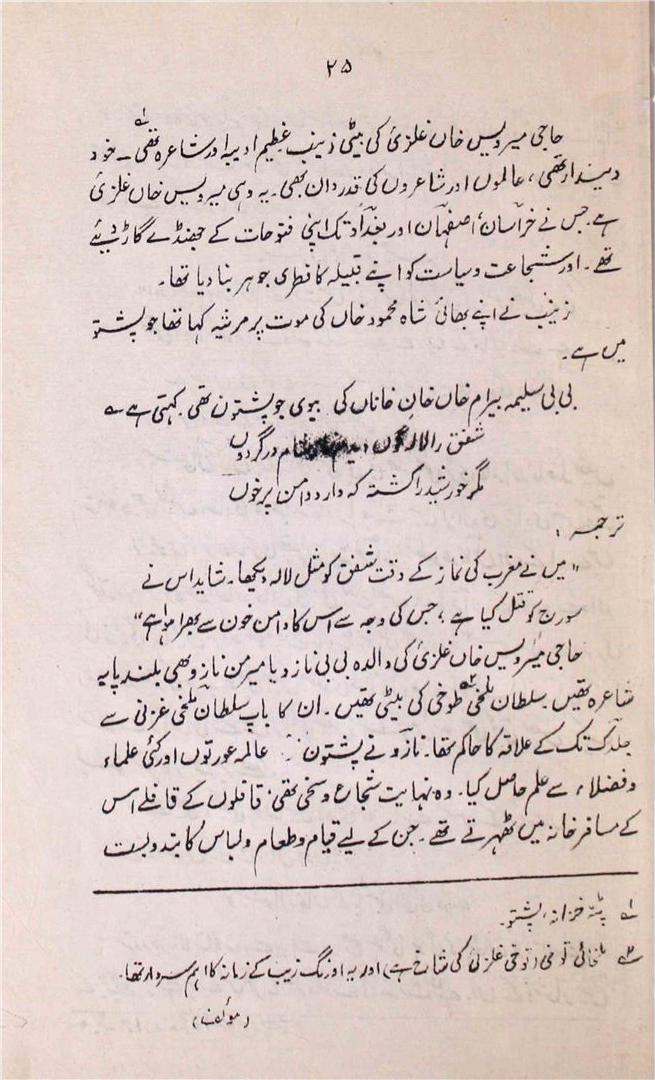 ۲۵
حاجی میرویس خاں غلزئ کی بیٹی زینب عظیم ادیبہ اور شاعرہ تھی ۱ـ۔ خود
دیندار تھی، عالموں اور شاعروں کی قدر دان بھی۔ یہ وہی میرویس خاں غلزئ
ہے جس نے خراسان، اصفہان اور بغداد تک اپنی فتوحات کے جھنڈے گاڑ دیئے
تھے۔ اور شجاعت و سیاست کو اپنے قبیلہ کا فطری جوہر بنا دیا تھا۔
زینب نے اپنے بھائ شاہ محمود خاں کی موت پر مرثیہ کہا تھا جو پشتو
میں ہے۔
بی بی سلیمہ بیرام خاں خانِ خاناں کی بیوی جو پشتون تھی کہتی ہے ؎
شفق را لالہ گوں دیدم شام در گردوں
مگر خورشید را کشتہ کہ دارد دامن پر خوں
ترجمہ :
"میں نے مغرب کی نماز کے وقت شفق کو مثل لالہ دیکھا۔ شاید اس نے
سورج کو قتل کیا ہے، جس کی وجہ سے اس کا دامن خون سے بھرا ہوا ہے"
حاجی میرویس خاں غلزئ کی والدہ بی بی نازو یا میرمن نازو بھی بلند پایہ
شاعرہ تھیں۔ سلطان ملخی ۲ـ طوخی کی بیٹی تھیں۔ ان کا باپ سلطان ملخی غزنی سے
جلدک تک کے علاقہ کا حاکم تھا۔ نازو نے پشتون عالمہ عورتوں اور کئی علماء
و فضلاء سے علم حاصل کیا۔ وہ نہایت شجاع و سخی تھی۔ قافلوں کے قافلے اس
کے مسافر خانہ میں ٹھہرتے تھے۔ جن کے لیے قیام و طعام و لباس کا بندوبست
۱ـ پٹہ خزانہ، پشتو۔
۲ـ ملخائی توخی (توخی غلزئی کی شاخ ہے) اور یہ اورنگ زیب کے زمانہ کا اہم سردار تھا۔
(مولف)